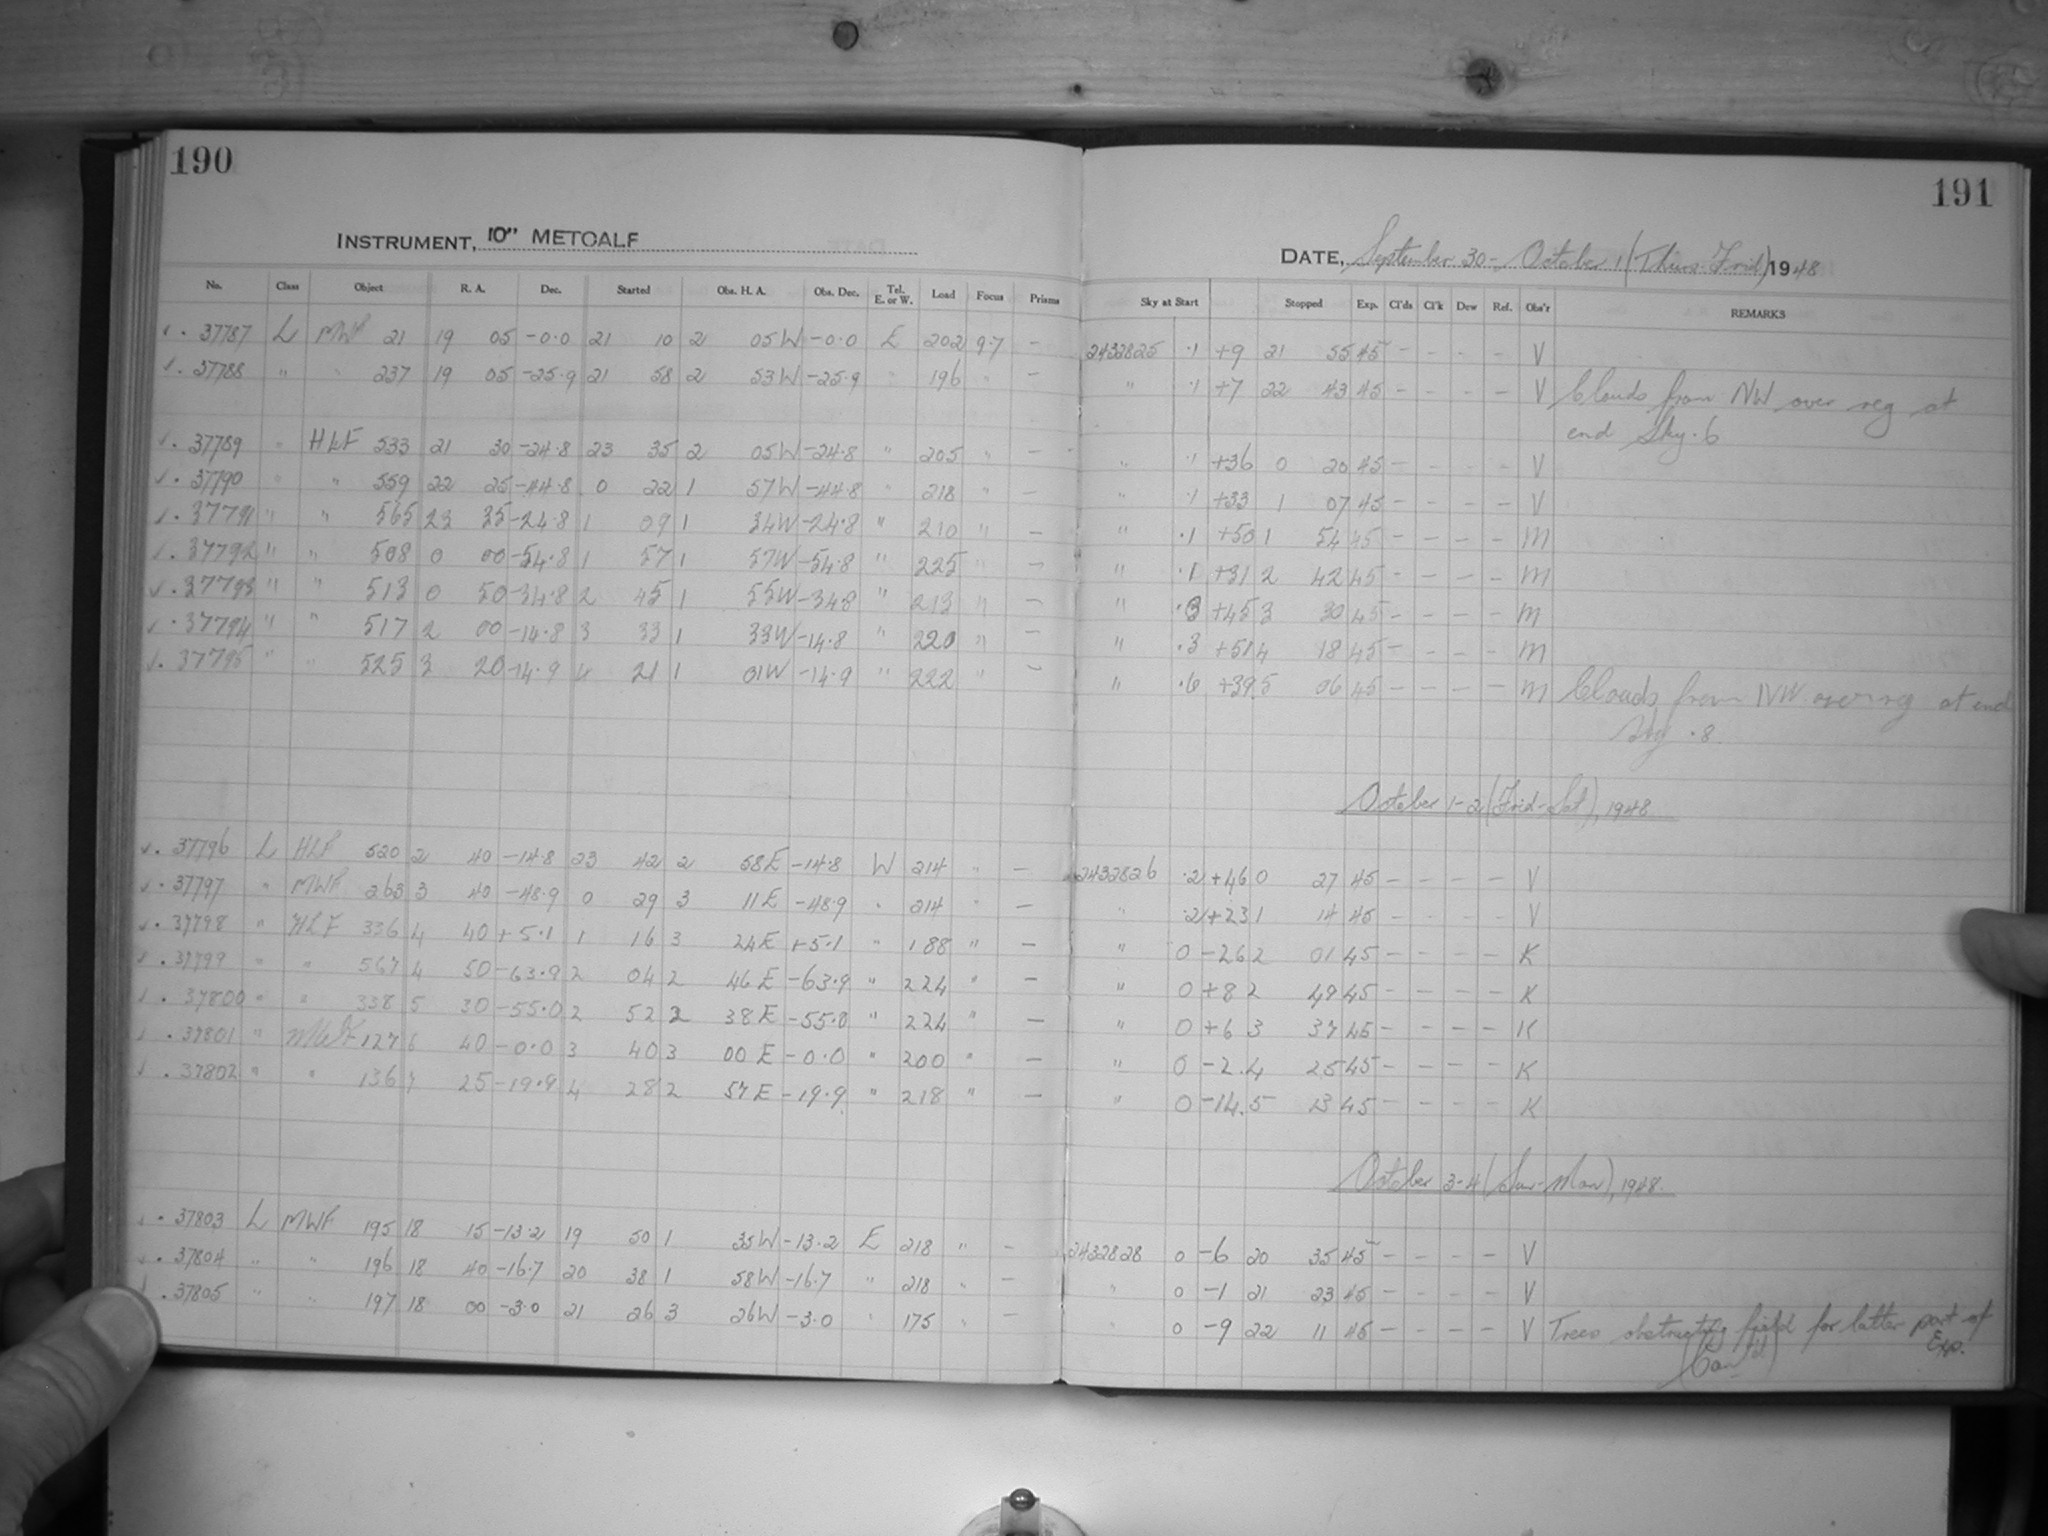 190
191
INSTRUMENT, 10" METCALF
DATE, September 30 - October 1 (Thurs-Frid) 1948
No. Class Object R. A. Dec. Started Obs. H. A. Obs. Dec. Tel. E. or W. Load Focus Prisms Sky at Start Stopped Exp. Cl'ds Cl'k Dew Ref. Obs'r REMARKS
✓ . 37787 L MWF 21 19 05 -0.0 21 10 2 05W -0.0 E 202 9.7 - 2432825 .1 +9 21 55 45 - - - - V
✓ . 37788 " " 237 19 05 -25.9 21 58 2 53W -25.9 " 196 " - " .1 +7 22 43 45 - - - - V Clouds from NW over reg at
end Sky .6
✓ . 37789 " HLF 533 21 30 -24.8 23 35 2 05W -24.8 " 205 " - " .1 +36 0 20 45 - - - - V
✓ . 37790 " " 559 22 25 -44.8 0 22 1 57W -44.8 " 218 " - " .1 +33 1 07 45 - - - - V
✓ . 37791 " " 565 23 35 -24.8 1 09 1 34W -24.8 " 210 " - " .1 +50 1 54 45 - - - - M
✓ . 37792 " " 508 0 00 -54.8 1 57 1 57W -54.8 " 225 " - " .1 +31 2 42 45 - - - - M
✓ . 37793 " " 513 0 50 -34.8 2 45 1 55W -34.8 " 213 " - " .3 +45 3 30 45 - - - - M
✓ . 37794 " " 517 2 00 -14.8 3 33 1 33W -14.8 " 220 " - " .3 +51 4 18 45 - - - - M
✓ . 37795 " " 525 3 20 -14.9 4 21 1 01W -14.9 " 222 " - " .6 +39 5 06 45 - - - - M Clouds from NW over reg at end
Sky .8
October 1-2 (Frid-Sat), 1948
✓ . 37796 L HLF 520 2 40 -14.8 23 42 2 58E -14.8 W 214 " - 2432826 .2 +46 0 27 45 - - - - V
✓ . 37797 " MWF 263 3 40 -48.9 0 29 3 11E -48.9 " 214 " - " .2 +23 1 14 45 - - - - V
✓ . 37798 " HLF 336 4 40 +5.1 1 16 3 24E +5.1 " 188 " - " 0 -26 2 01 45 - - - - K
✓ . 37799 " " 567 4 50 -63.9 2 04 2 46E -63.9 " 224 " - " 0 +8 2 49 45 - - - - K
✓ . 37800 " " 338 5 30 -55.0 2 52 2 38E -55.0 " 224 " - " 0 +6 3 37 45 - - - - K
✓ . 37801 " MWF 127 6 40 -0.0 3 40 3 00E -0.0 " 200 " - " 0 -2 4 25 45 - - - - K
✓ . 37802 " " 136 7 25 -19.9 4 28 2 57E -19.9 " 218 " - " 0 -14 5 13 45 - - - - K
October 3-4 (Sun-Mon), 1948.
✓ . 37803 L MWF 195 18 15 -13.2 19 50 1 35W -13.2 E 218 " - 2432828 0 -6 20 35 45 - - - - V
✓ . 37804 " " 196 18 40 -16.7 20 38 1 58W -16.7 " 218 " - " 0 -1 21 23 45 - - - - V
✓ . 37805 " " 197 18 00 -3.0 21 26 3 26W -3.0 " 175 " - " 0 -9 22 11 45 - - - - V Trees obstructing field for latter part of Exp.
(Con'td)